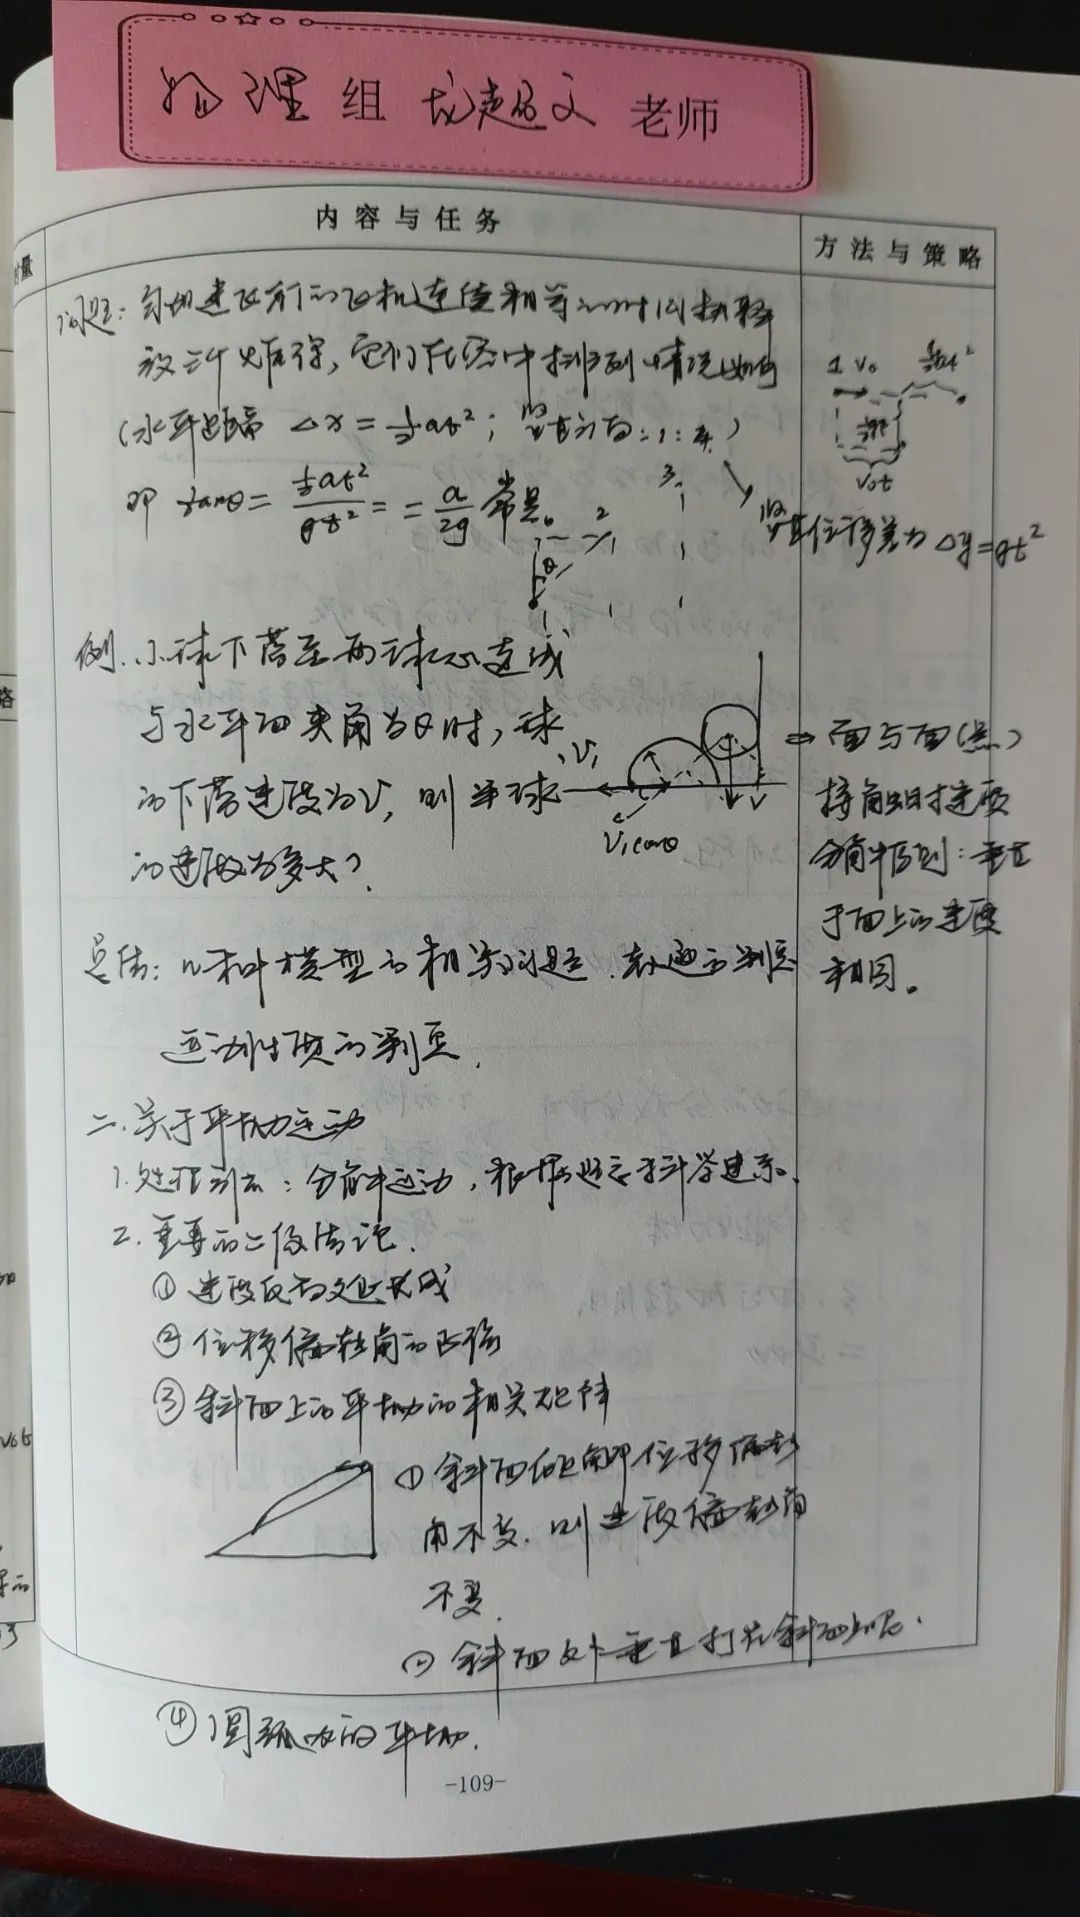 物理组 龙超文 老师
内容与任务
方法与策略
量
问题：匀加速飞行的飞机连续相等的时间间隔释
放三个炸弹，它们在空中排列情况如何
(水平距离 Δx = ½at²；竖直方向：1：3)
即 tanθ = ½at² / gt² = = a/2g 常量。
竖直位移差为 Δy = gt²
1 V₀ ½at²
V₀t
例．小球下落至两球心连线
与水平面夹角为θ时，球
的下落速度为V，则半球
的速度为多大？
V₁
V₁cosθ
V
⇒ 面与面(点)
接触时速度
分解原则：垂直
于面上的速度
相同。
总结：几种模型的相关问题．表达的判定
运动性质的判定．
二．关于平抛运动
1.处理方法：分解运动，根据题意科学建系．
2．重要的二级结论．
① 速度反向交点共线
② 位移偏转角的正确
③ 斜面上的平抛的相关矩阵
① 斜面倾角即位移偏转
角不变．则速度偏转角
不变．
② 斜面外垂直打在斜面上．
④ 圆弧内的平抛．
-109-